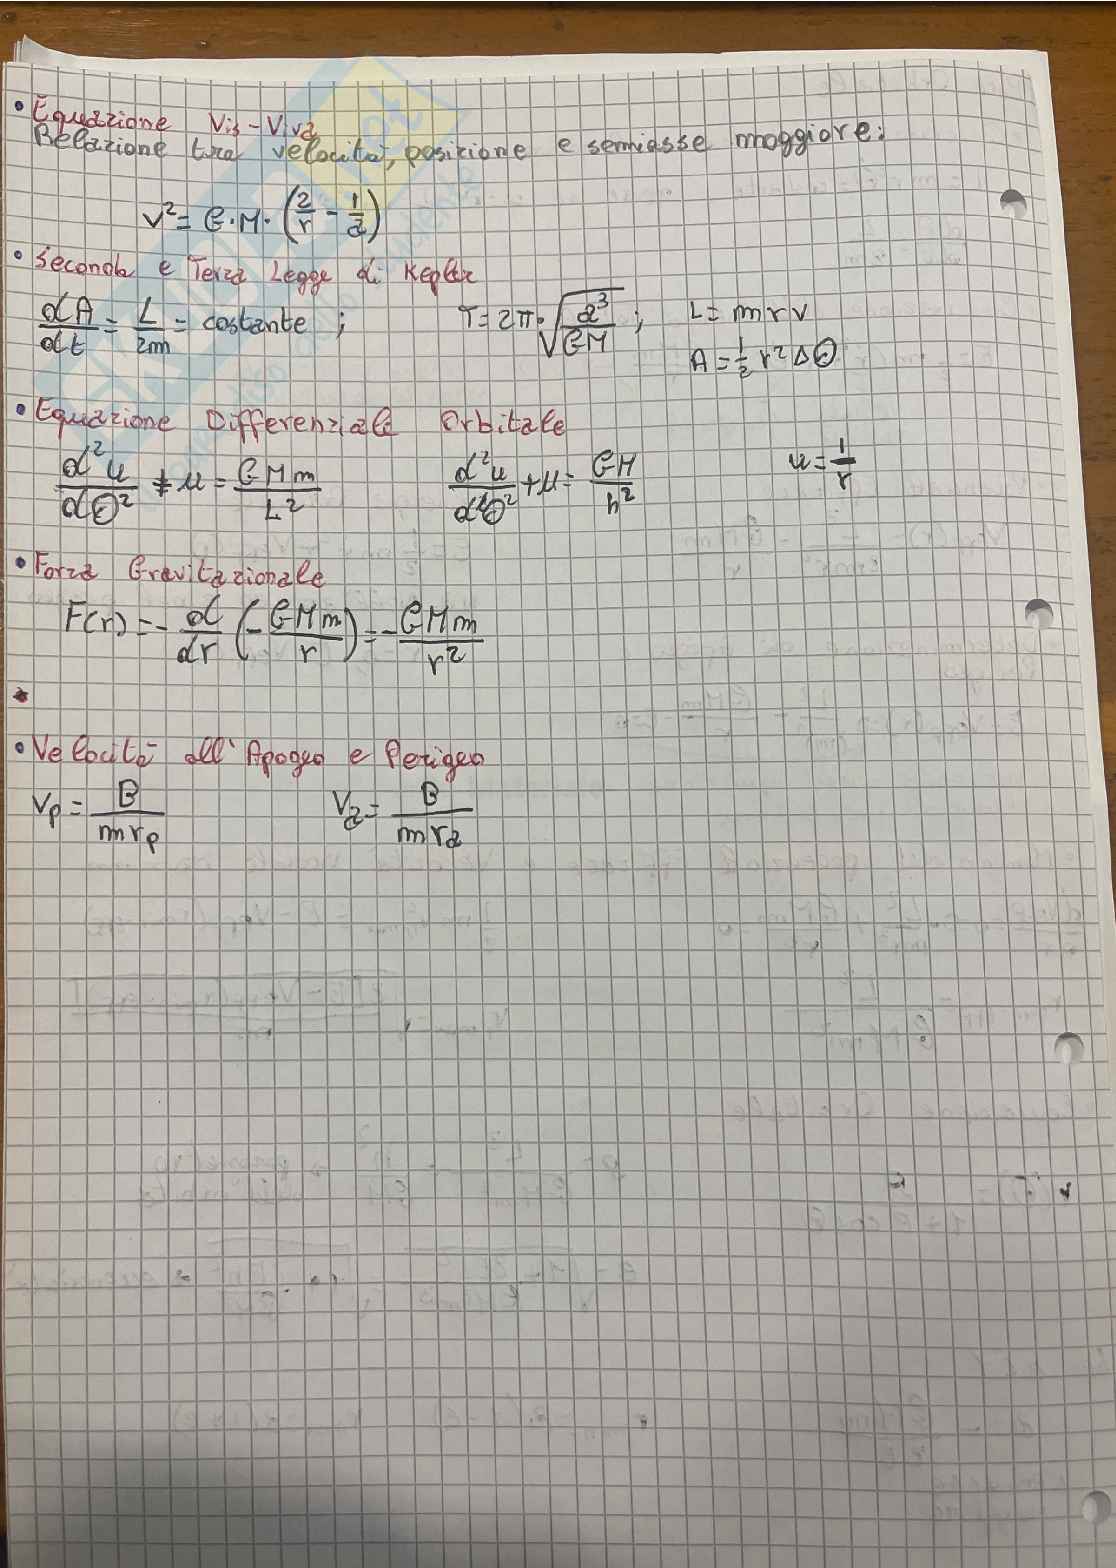 • Equazione Vis-Viva
Relazione tra velocità, posizione e semiasse maggiore:
v² = G·M·(2/r - 1/a)
• Seconda e Terza Legge di Keplero
dA/dt = L/2m = costante ; T = 2π·√(a³/GM) ; L = m r v
A = 1/2 r² Δθ
• Equazione Differenziale Orbitale
d²u/dθ² + u = GMm/L² d²u/d²θ² + u = GM/h² u = 1/r
• Forza Gravitazionale
F(r) = - d/dr (- GMm/r) = - GMm/r²
•
• Velocità all'Apogeo e Perigeo
Vp = B/m rp Va = B/m ra